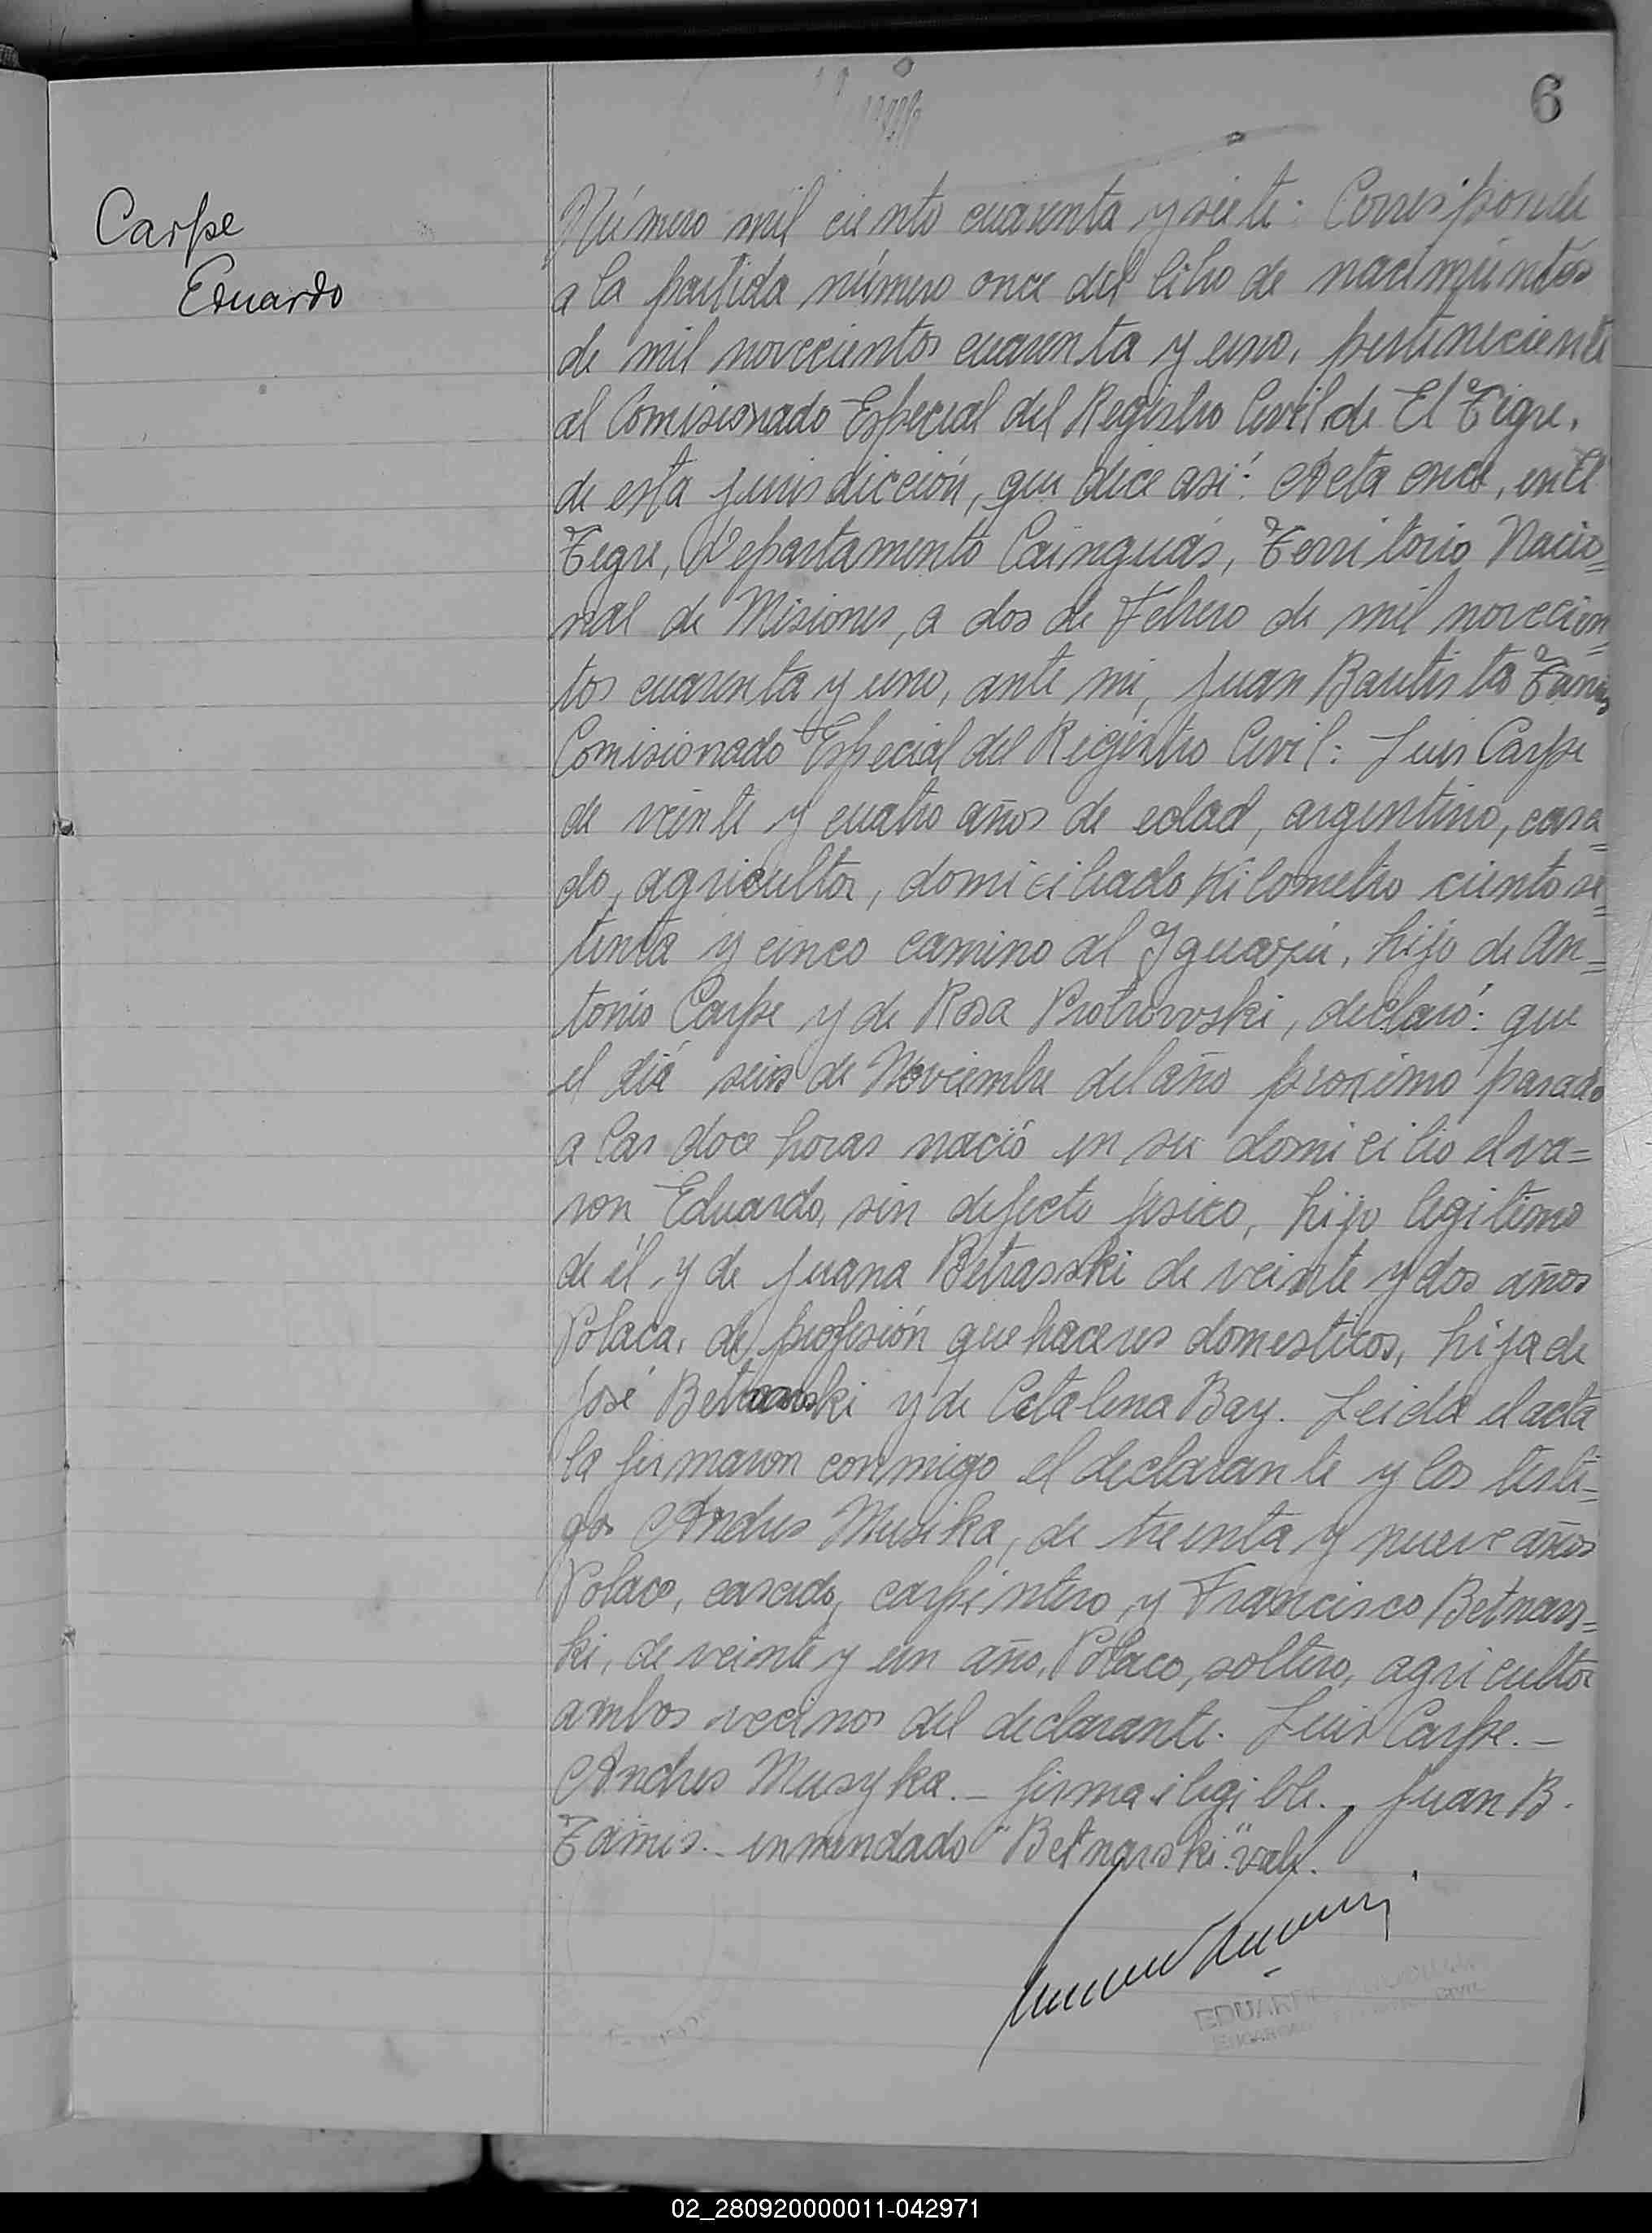 6
Carpe
Eduardo
Número mil ciento cuarenta y siete: Corresponde
a la partida número once del libro de nacimientos
de mil novecientos cuarenta y uno, perteneciente
al Comisionado Especial del Registro Civil de El Tigre,
de esta jurisdicción, que dice así: Acta once, en El
Tigre, Departamento Cainguás, Territorio Nacio=
nal de Misiones, a dos de Febrero de mil novecien=
tos cuarenta y uno, ante mi, Juan Bautista
Comisionado Especial del Registro Civil: Luis Carpe
de veinte y cuatro años de edad, argentino, casa=
do, agricultor, domiciliado Kilometro ciento se=
tenta y cinco camino al Iguazú, hijo de An=
tonio Carpe y de Rosa Protrowski, declaró: que
el diá seis de Noviembre del año proximo pasado
a las doce horas nació en su domicilio el va=
rón Eduardo, sin defecto fisico, hijo legitimo
de él y de Juana Betrasski de veinte y dos años
Polaca, de profesión quehaceres domesticos, hija de
José Betnarski y de Catalina Bay. Leida el acta
la firmaron conmigo el declarante y los testi=
gos Andres Musika, de treinta y nueve años
Polaco, casado, carpintero y Francisco Betnars=
ki, de veinte y un año, Polaco, soltero, agricultor
ambos vecinos del declarante. Luis Carpe.—
Andres Musyka.— firma ilegible., Juan B.
enmendado "Betnarski" vale.
02_280920000011-042971